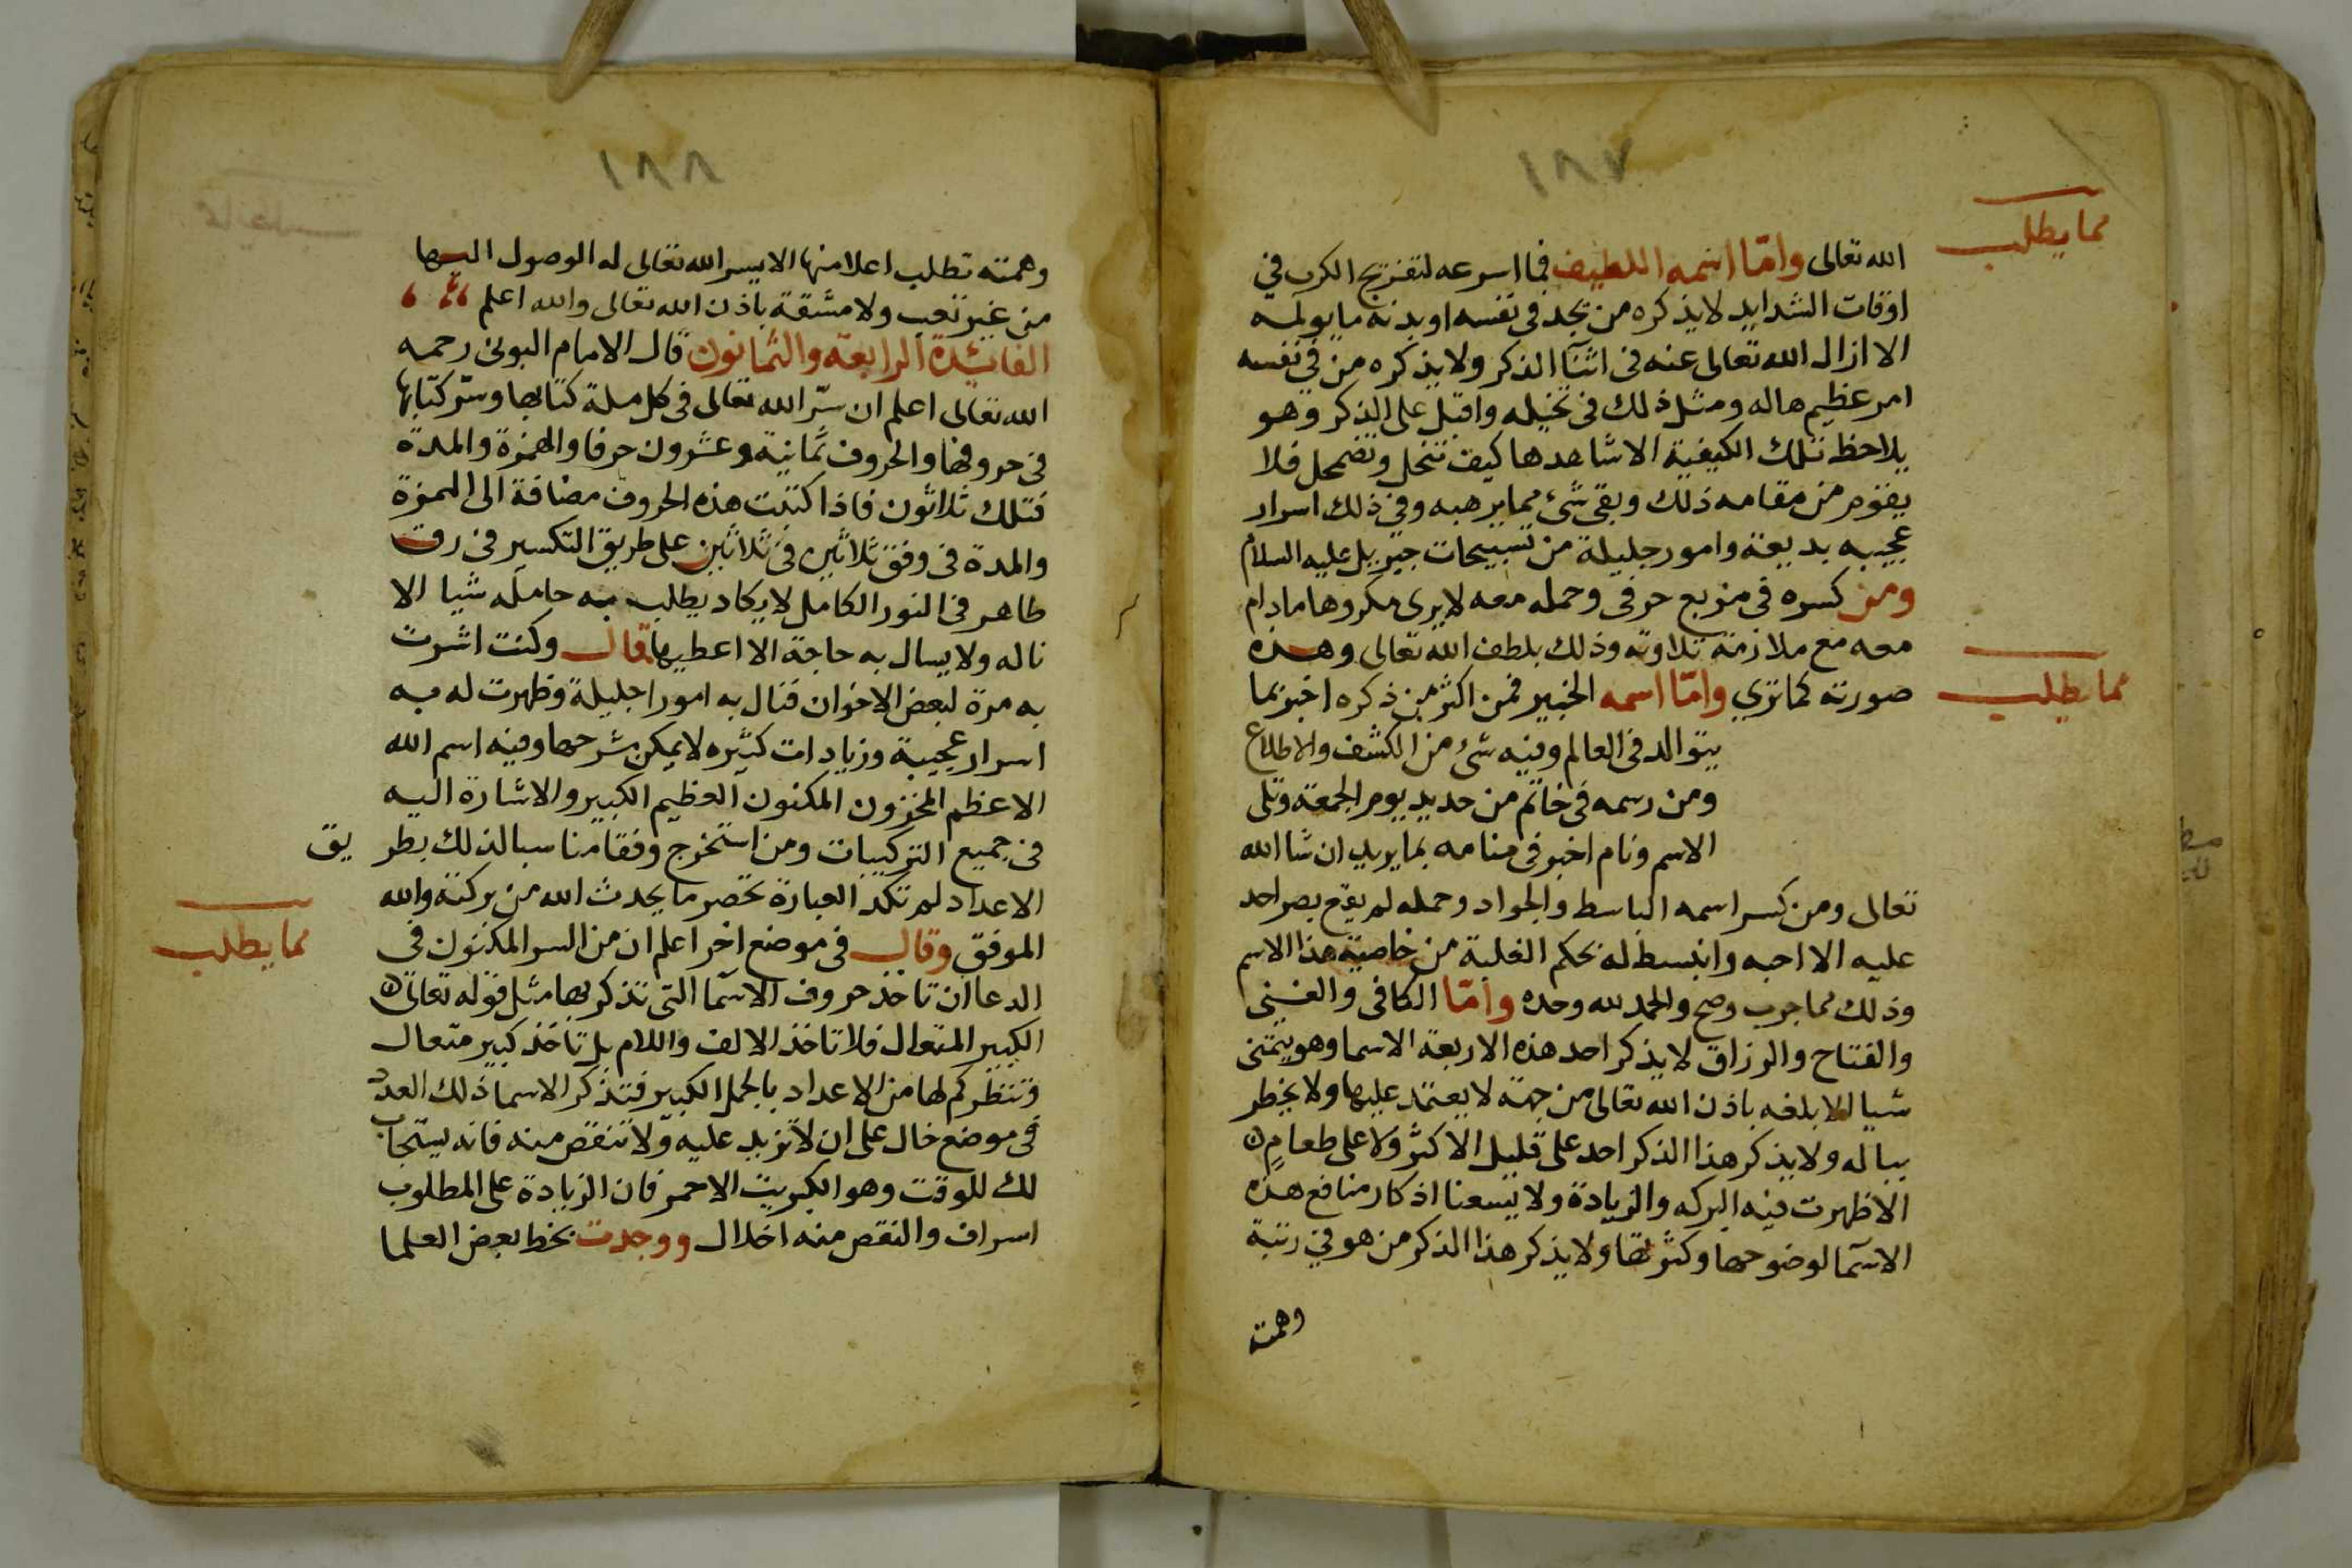 ١٨٧
مما يطلب
الله تعالى واما اسمه اللطيف فما اسرعه لتفريج الكرب في
اوقات الشدايد لا يذكره من يجد في نفسه او بدنه ما يولمه
الا ازال الله تعالى عنه في اثنآ الذكر ولا يذكره من في نفسه
امر عظيم هاله ومثل ذلك في تخيله واقبل على الذكر وهو
يلاحظ تلك الكيفية الا شاهدها كيف تنحل وتضمحل فلا
يقوم من مقامه ذلك وبقى شئ مما يرهبه وفي ذلك اسرار
عجيبه بديعة وامور جليلة من تسبيحات جبريل عليه السلام
ومن كسره في مربع حرفى وحمله معه لا يرى مكروها مادام
معه مع ملازمة تلاوته وذلك بلطف الله تعالى وهذه
مما يطلب
صورته كما تري واما اسمه الخبير فمن اكثر من ذكره اخبر بما
يتوالد في العالم وفيه شئ من الكشف والاطلاع
ومن رسمه في خاتم من حديد يوم الجمعة وتلى
الاسم ونام اخبر في منامه بما يريد ان شا الله
تعالى ومن كسر اسمه الباسط والجواد وحمله لم يقع بصر احد
عليه الا احبه وانبسط له بحكم الغلبة من خاصية هذا الاسم
وذلك مما جرب وصح والحمد لله وحده واما الكافى والغنى
والفتاح والرزاق لا يذكر احد هذه الاربعة الاسما وهو يتمنى
شيا الا بلغه باذن الله تعالى من جهة لا يعتمد عليها ولا يخطر
بباله ولا يذكر هذا الذكر احد على قليل الا كثر ولا على طعام
الا ظهرت فيه البركه والزيادة ولا يسعنا اذكار منافع هذه
الاسمآ لوضوحها وكثرتها ولا يذكر هذا الذكر من هو في رتبة
وهمته
١٨٨
وهمته تطلب اعلا منها الا يسر الله تعالى له الوصول اليها
من غير تعب ولا مشقة باذن الله تعالى والله اعلم
الفائدة الرابعة والثمانون قال الامام البونى رحمه
الله تعالى اعلم ان سر الله تعالى في كل ملة كتابها وسر كتابها
في حروفها والحروف ثمانية وعشرون حرفا والهمزة والمدة
فتلك ثلاثون فاذا كتبت هذه الحروف مضافة الى الهمزة
والمدة في وفق ثلاثين في ثلاثين على طريق التكسير في رق
طاهر في النور الكامل لا يكاد يطلب به حامله شيا الا
ناله ولا يسال به حاجة الا اعطيها قال وكنت اشرت
به مرة لبعض الاخوان فنال به امورا جليلة وظهرت له به
اسرار عجيبة وزيادات كثيره لا يمكن شرحها وفيه اسم الله
الاعظم المخزون المكنون العظيم الكبير والاشارة اليه
في جميع التركيبات ومن استخرج وفقا مناسبا لذلك بطريق
الاعداد لم تكد العبارة تحصر ما يحدث الله من بركته والله
مما يطلب
الموفق وقال في موضع اخر اعلم ان من السر المكنون في
الدعا ان تاخذ حروف الاسمآ التى تذكر بها مثل قوله تعالى
الكبير المتعال فلا تاخذ الالف واللام بل تاخذ كبير متعال
وتنظر كم لها من الاعداد بالجمل الكبير فتذكر الاسما ذلك العدد
في موضع خال على ان لا تزيد عليه ولا تنقص منه فانه يستجاب
لك للوقت وهو الكبريت الاحمر فان الزيادة على المطلوب
اسراف والنقص منه اخلال ووجدت بخط بعض العلما